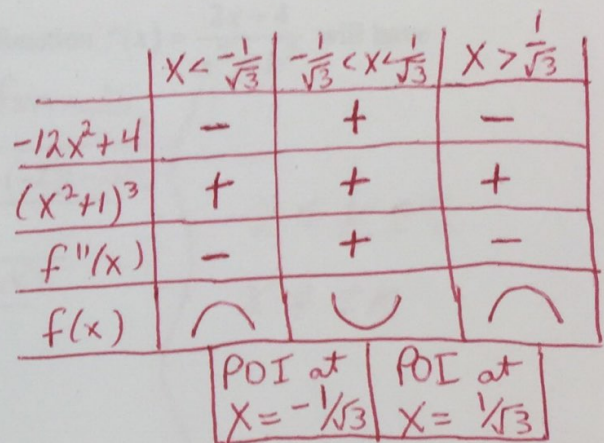 x < -1/√3 -1/√3 < x < 1/√3 x > 1/√3
-12x²+4 - + -
(x²+1)³ + + +
f''(x) - + -
f(x)
POI at POI at
x = -1/√3 x = 1/√3